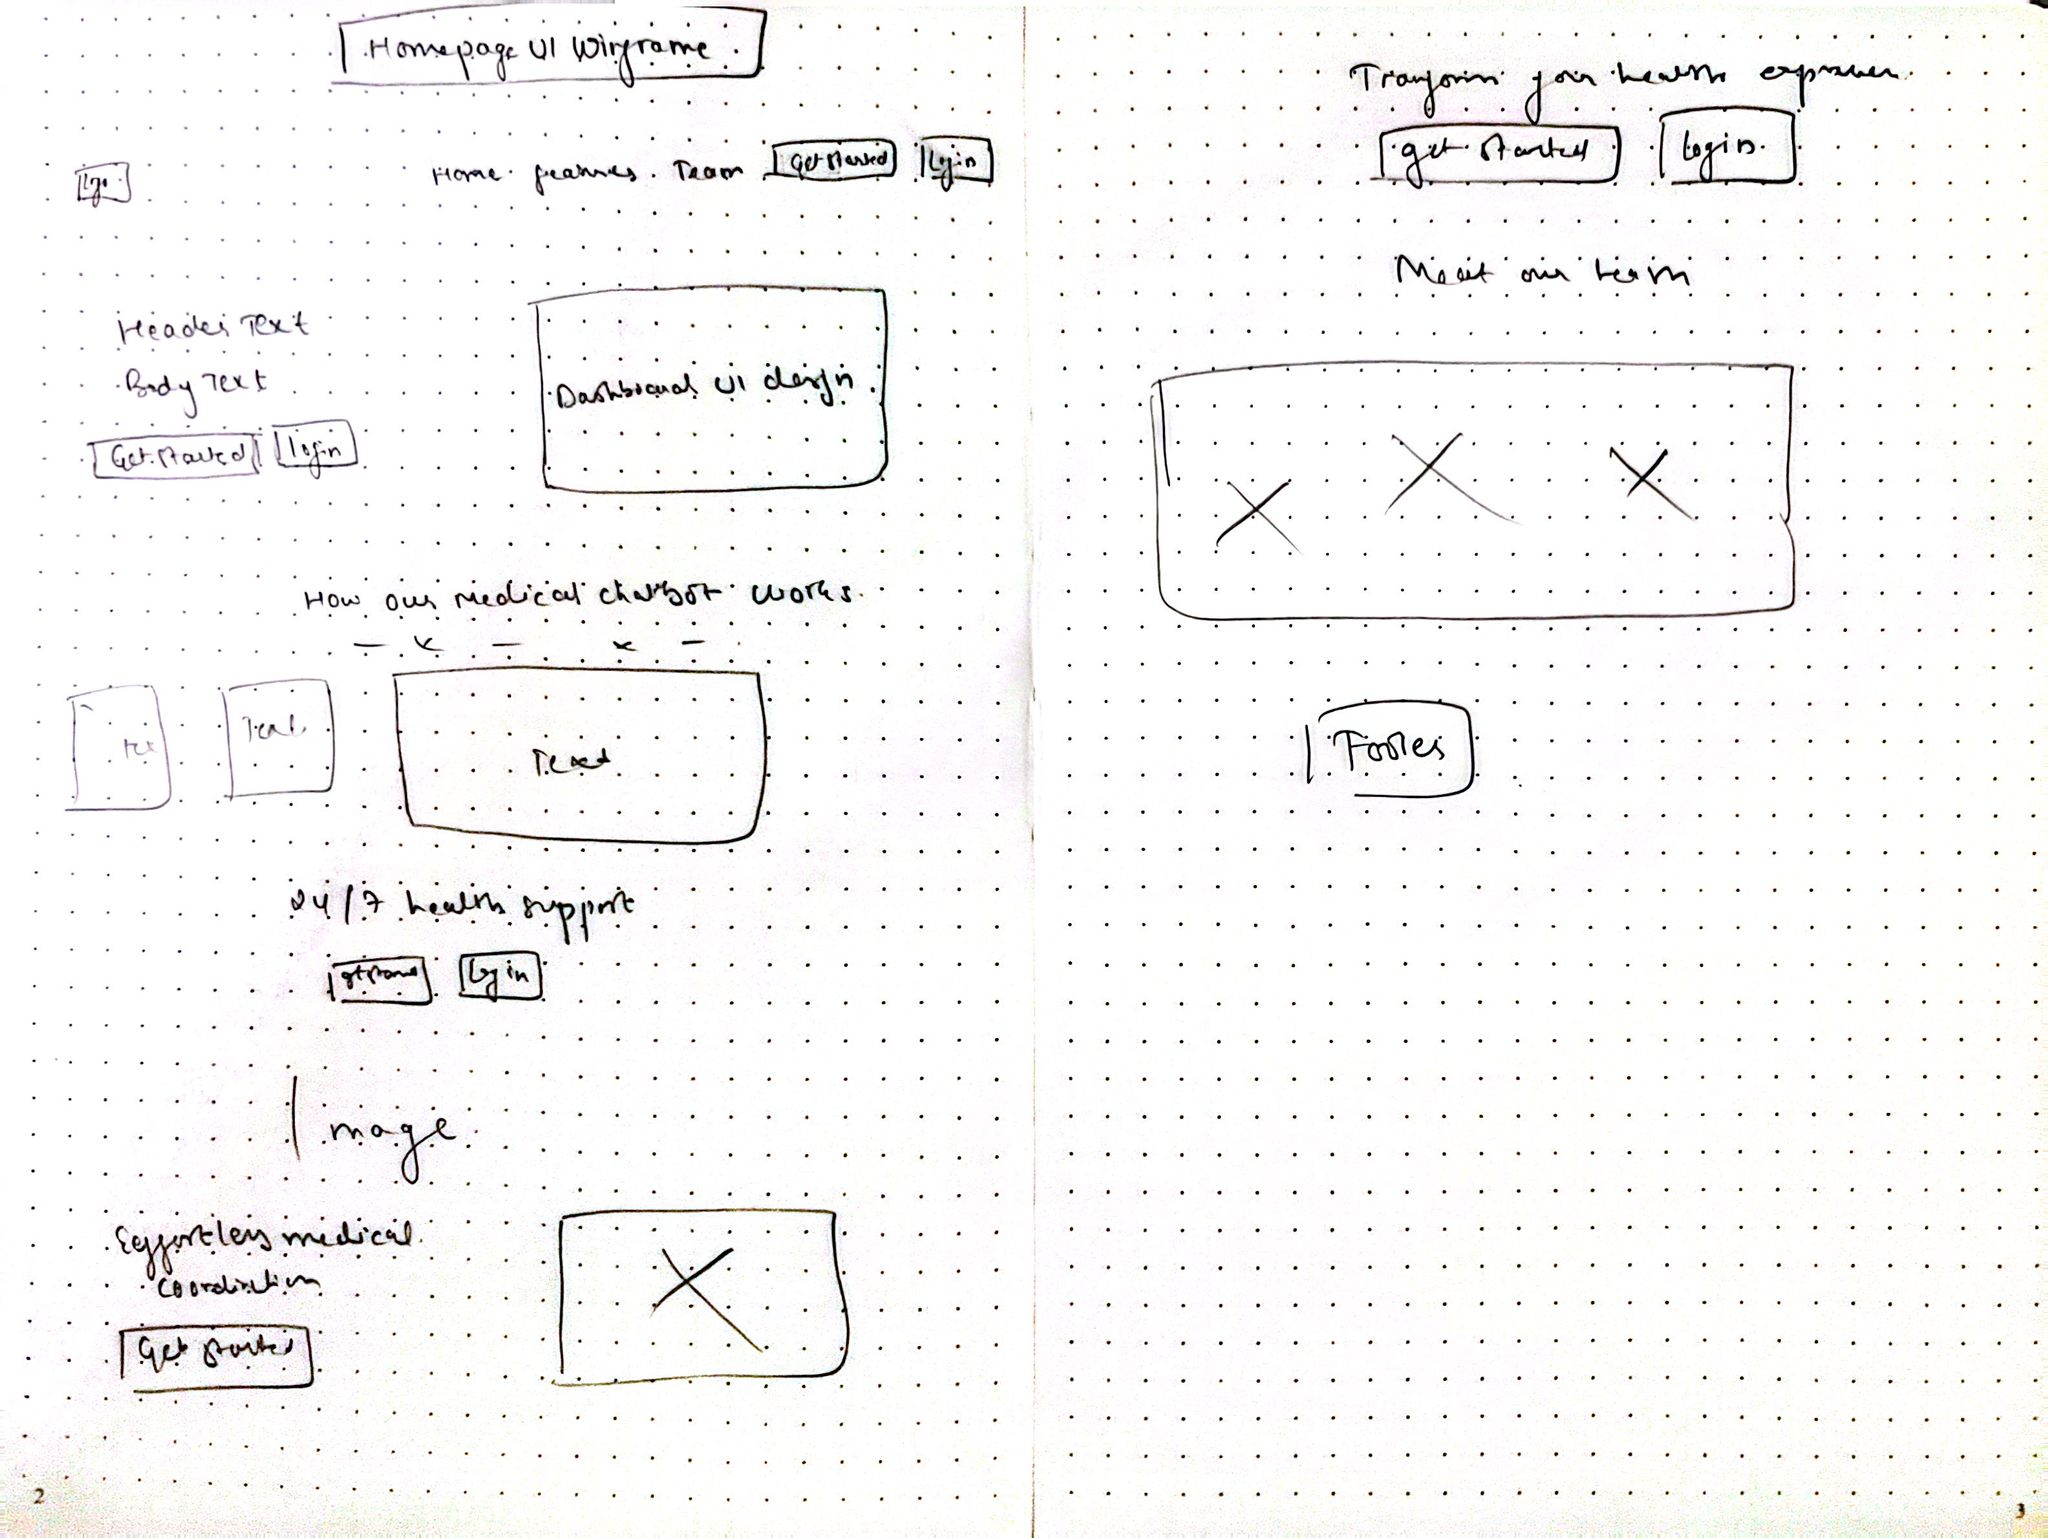 Homepage UI Wirframe
Logo
Home features Team Get started Login
Header Text
Body Text
Get started Login
Dashboard UI design
How our medical chatbot works
Tex Text Text
24/7 health support
get started Login
Image
Effortless medical
coordination
Get started
2
Transform your health experience
get started Login
Meet our team
Footer
3